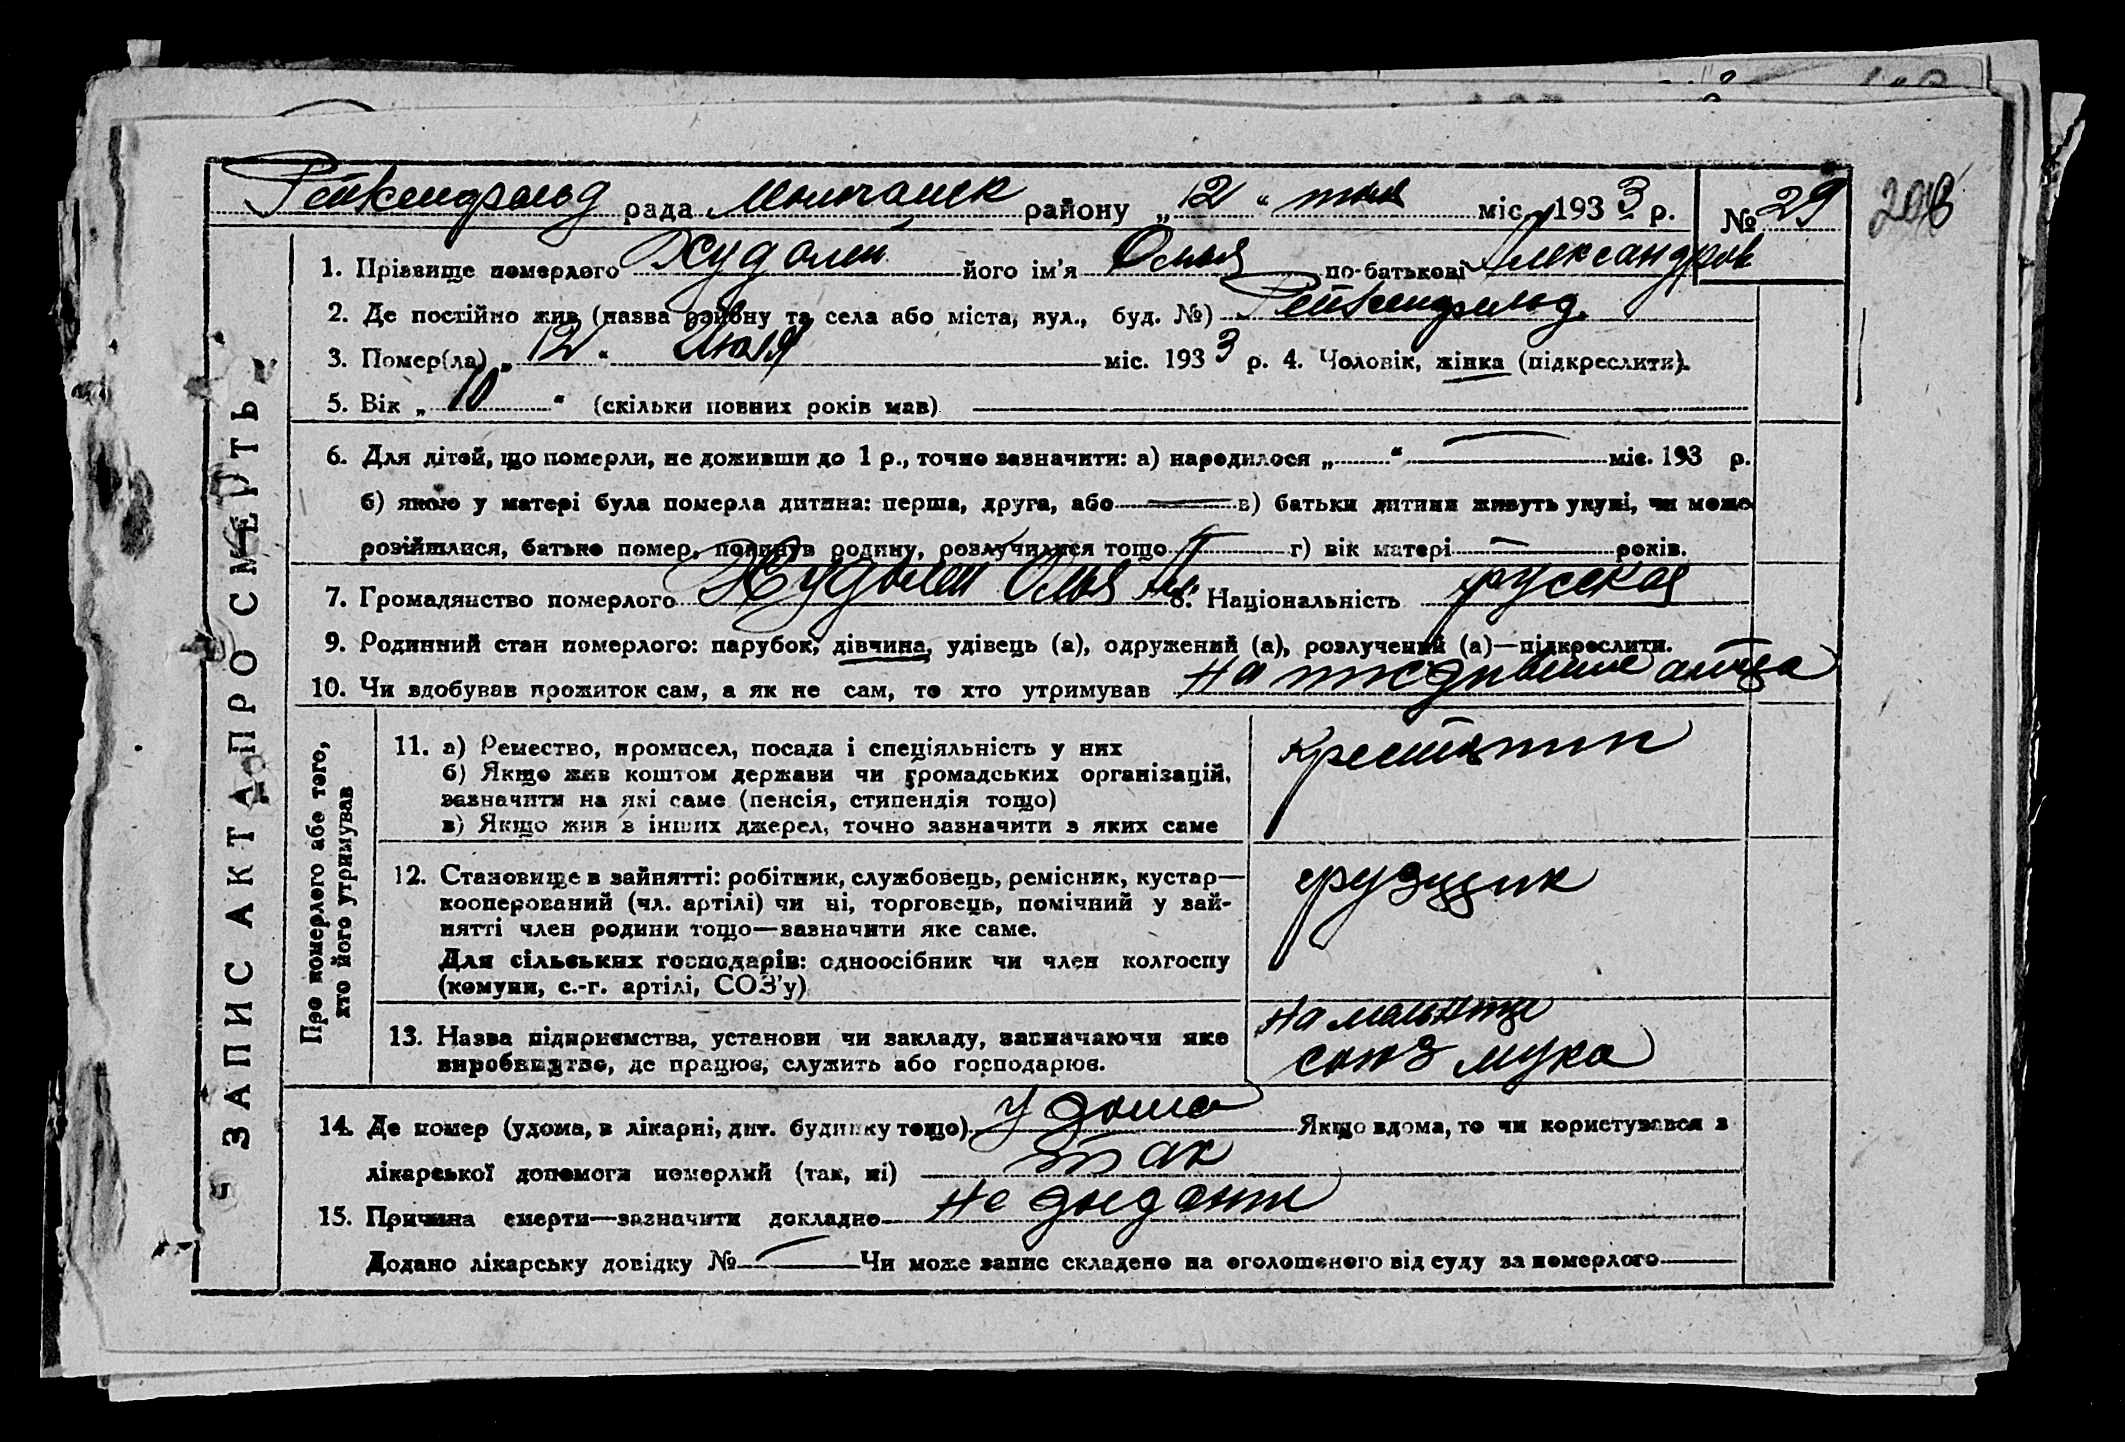 Рейкенфельд рада Молочанск району „ 12 “ июля міс. 1933 р. № 29 208
1. Прізвище померлого Худолей його ім'я Ольга по-батькові Александров
2. Де постійно жив (назва району та села або міста, вул., буд. №) Рейкенфельд
3. Помер(ла) „ 12 “ Июля міс. 1933 р. 4. Чоловік, жінка (підкреслити).
5. Вік „ 10 “ (скільки повних років мав)
6. Для дітей, що померли, не доживши до 1 р., точно зазначити: а) народилося „ “ міс. 193 р.
б) якою у матері була померла дитина: перша, друга, або в) батьки дитини живуть укупі, чи може
розійшлися, батько помер, покинув родину, розлучилися тощо г) вік матері років.
7. Громадянство померлого Худолей Ольга 8. Національність русская
9. Родинний стан померлого: парубок, дівчина, удівець (а), одружений (а), розлучений (а)—підкреслити.
10. Чи здобував прожиток сам, а як не сам, то хто утримував на отца
ЗАПИС АКТА ПРО СМЕРТЬ
Про померлого або того,
хто його утримував
11. а) Ремество, промисел, посада і спеціяльність у них
б) Якщо жив коштом держави чи громадських організацій,
зазначити на які саме (пенсія, стипендія тощо)
в) Якщо жив з інших джерел, точно зазначити з яких саме
крестянин
12. Становище в зайнятті: робітник, службовець, ремісник, кустар—
кооперований (чл. артілі) чи ні, торговець, помічний у зай-
нятті член родини тощо—зазначити яке саме.
Для сільських господарів: одноосібник чи член колгоспу
(комуни, с.-г. артілі, СОЗ'у)
грузщик
13. Назва підприємства, установи чи закладу, зазначаючи яке
виробництво, де працює, служить або господарює.
на мельнице
союз мука
14. Де помер (удома, в лікарні, дит. будинку тощо) у дома Якщо вдома, то чи користувався з
лікарської допомоги померлий (так, ні) так
15. Причина смерти—зазначити докладно не доедание
Додано лікарську довідку № Чи може запис складено на оголошеного від суду за померлого